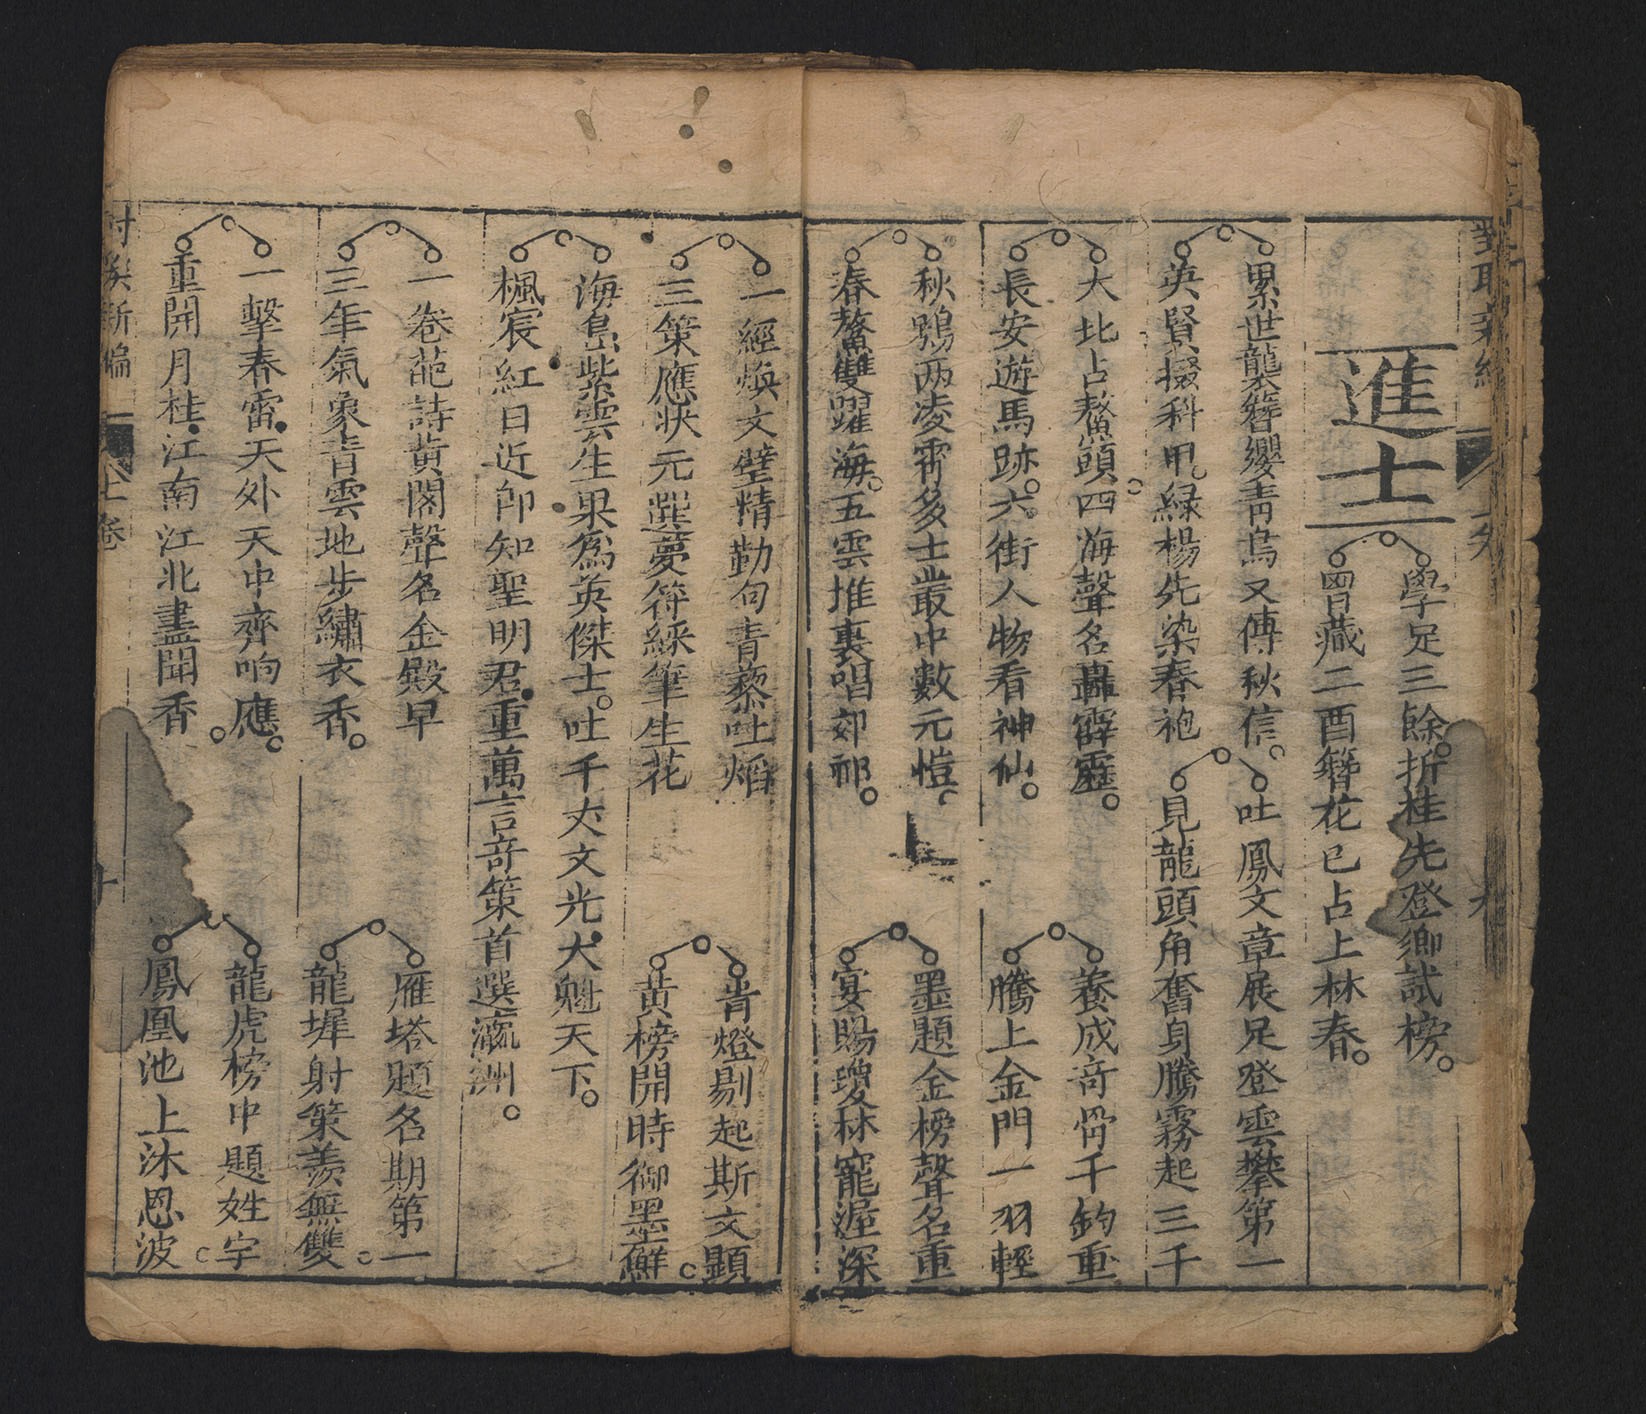 進士
學足三餘折桂先登鄉試榜
曾藏二酉簪花已占上林春
累世襲簪纓青鳥又傳秋信
英賢掇科甲緑楊先染春袍
吐鳳文章展足登雲攀第一
見龍頭角奮身騰霧起三千
大比占鰲頭四海聲名轟霹靂
長安遊馬跡六街人物看神仙
養成奇骨千鈞重
騰上金門一羽輕
秋鶚两凌霄多士叢中數元愷
春鰲雙躍海五雲推裏唱郊祁
墨題金榜聲名重
宴賜瓊林寵渥深
一經煥文壁精勤句青藜吐焰
三策應状元選夢符綵筆生花
青燈剔起斯文顯
黄榜開時御墨鮮
海島紫雲生果為英傑士吐千丈文光大魁天下
楓宸紅日近即知聖明君重萬言奇策首選瀛洲
一卷葩詩黄閣聲名金殿早
三年氣象青雲地步繡衣香
雁塔題名期第一
龍墀射策羡無雙
一擊春雷天外天中齊响應
重開月桂江南江北盡聞香
龍虎榜中題姓字
鳳凰池上沐恩波
新編
七卷